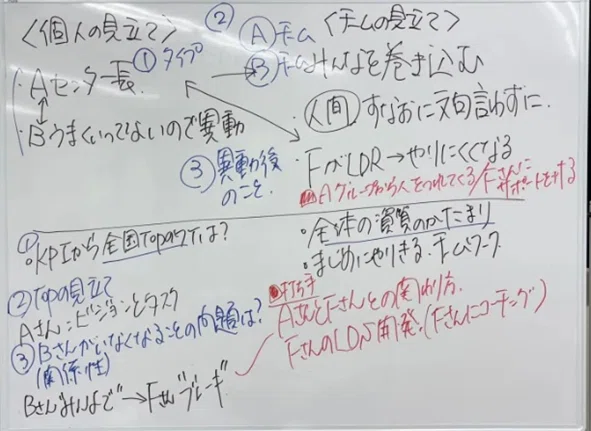 〈個人の見立て〉
① タイプ
・Aセンター長
・Bうまくいってないので異動
② 〈チームの見立て〉
Ⓐ チーム
→Ⓑ チームみんなを巻き込む
・人間 すなおに文句言わずに
・FがLDR→やりにくくなる
③ 異動後のこと
Aグループから人をつれてくる/Fさんにサポートをする
・全体の資質のかたまり
・まじめにやりきる チームワーク
①
・KPIから全国Topのチームは?
② Topの見立て
Aさん:ビジョンとタスク
③ Bさんがいなくなることの問題は?
(関係性)
Bさん"みんなで"→Fさん"ブレーキ"
打ち手
AさんとFさんとの関わり方
FさんのLDS開発(Fさんにコーチング)